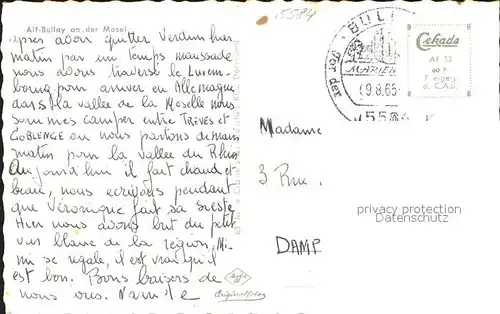 15584
Alf-Bullay an der Mosel
Après avoir quitter Verdun hier
matin par un temps maussade
nous avons traversé le Luxem-
bourg pour arriver en Allemagne
dans la vallée de la Moselle nous
sommes camper entre TREVES et
COBLENGE ou nous partons demain
matin pour la vallée du Rhin
Aujourd'hui il fait chaud et
beau, nous ecrivons pendant
que Véronique fait sa sieste
Hier nous avons but du petit
vin blanc de la région, Mi-
mi se régale, il est vrai qu'il
est bon. Bons baisers de
nous
Originalfoto
BULL
MARIEN
9.8.65
5584
Cekade
Af 53
Madame
3 Rue
privacy protection
Datenschutz
DAMP